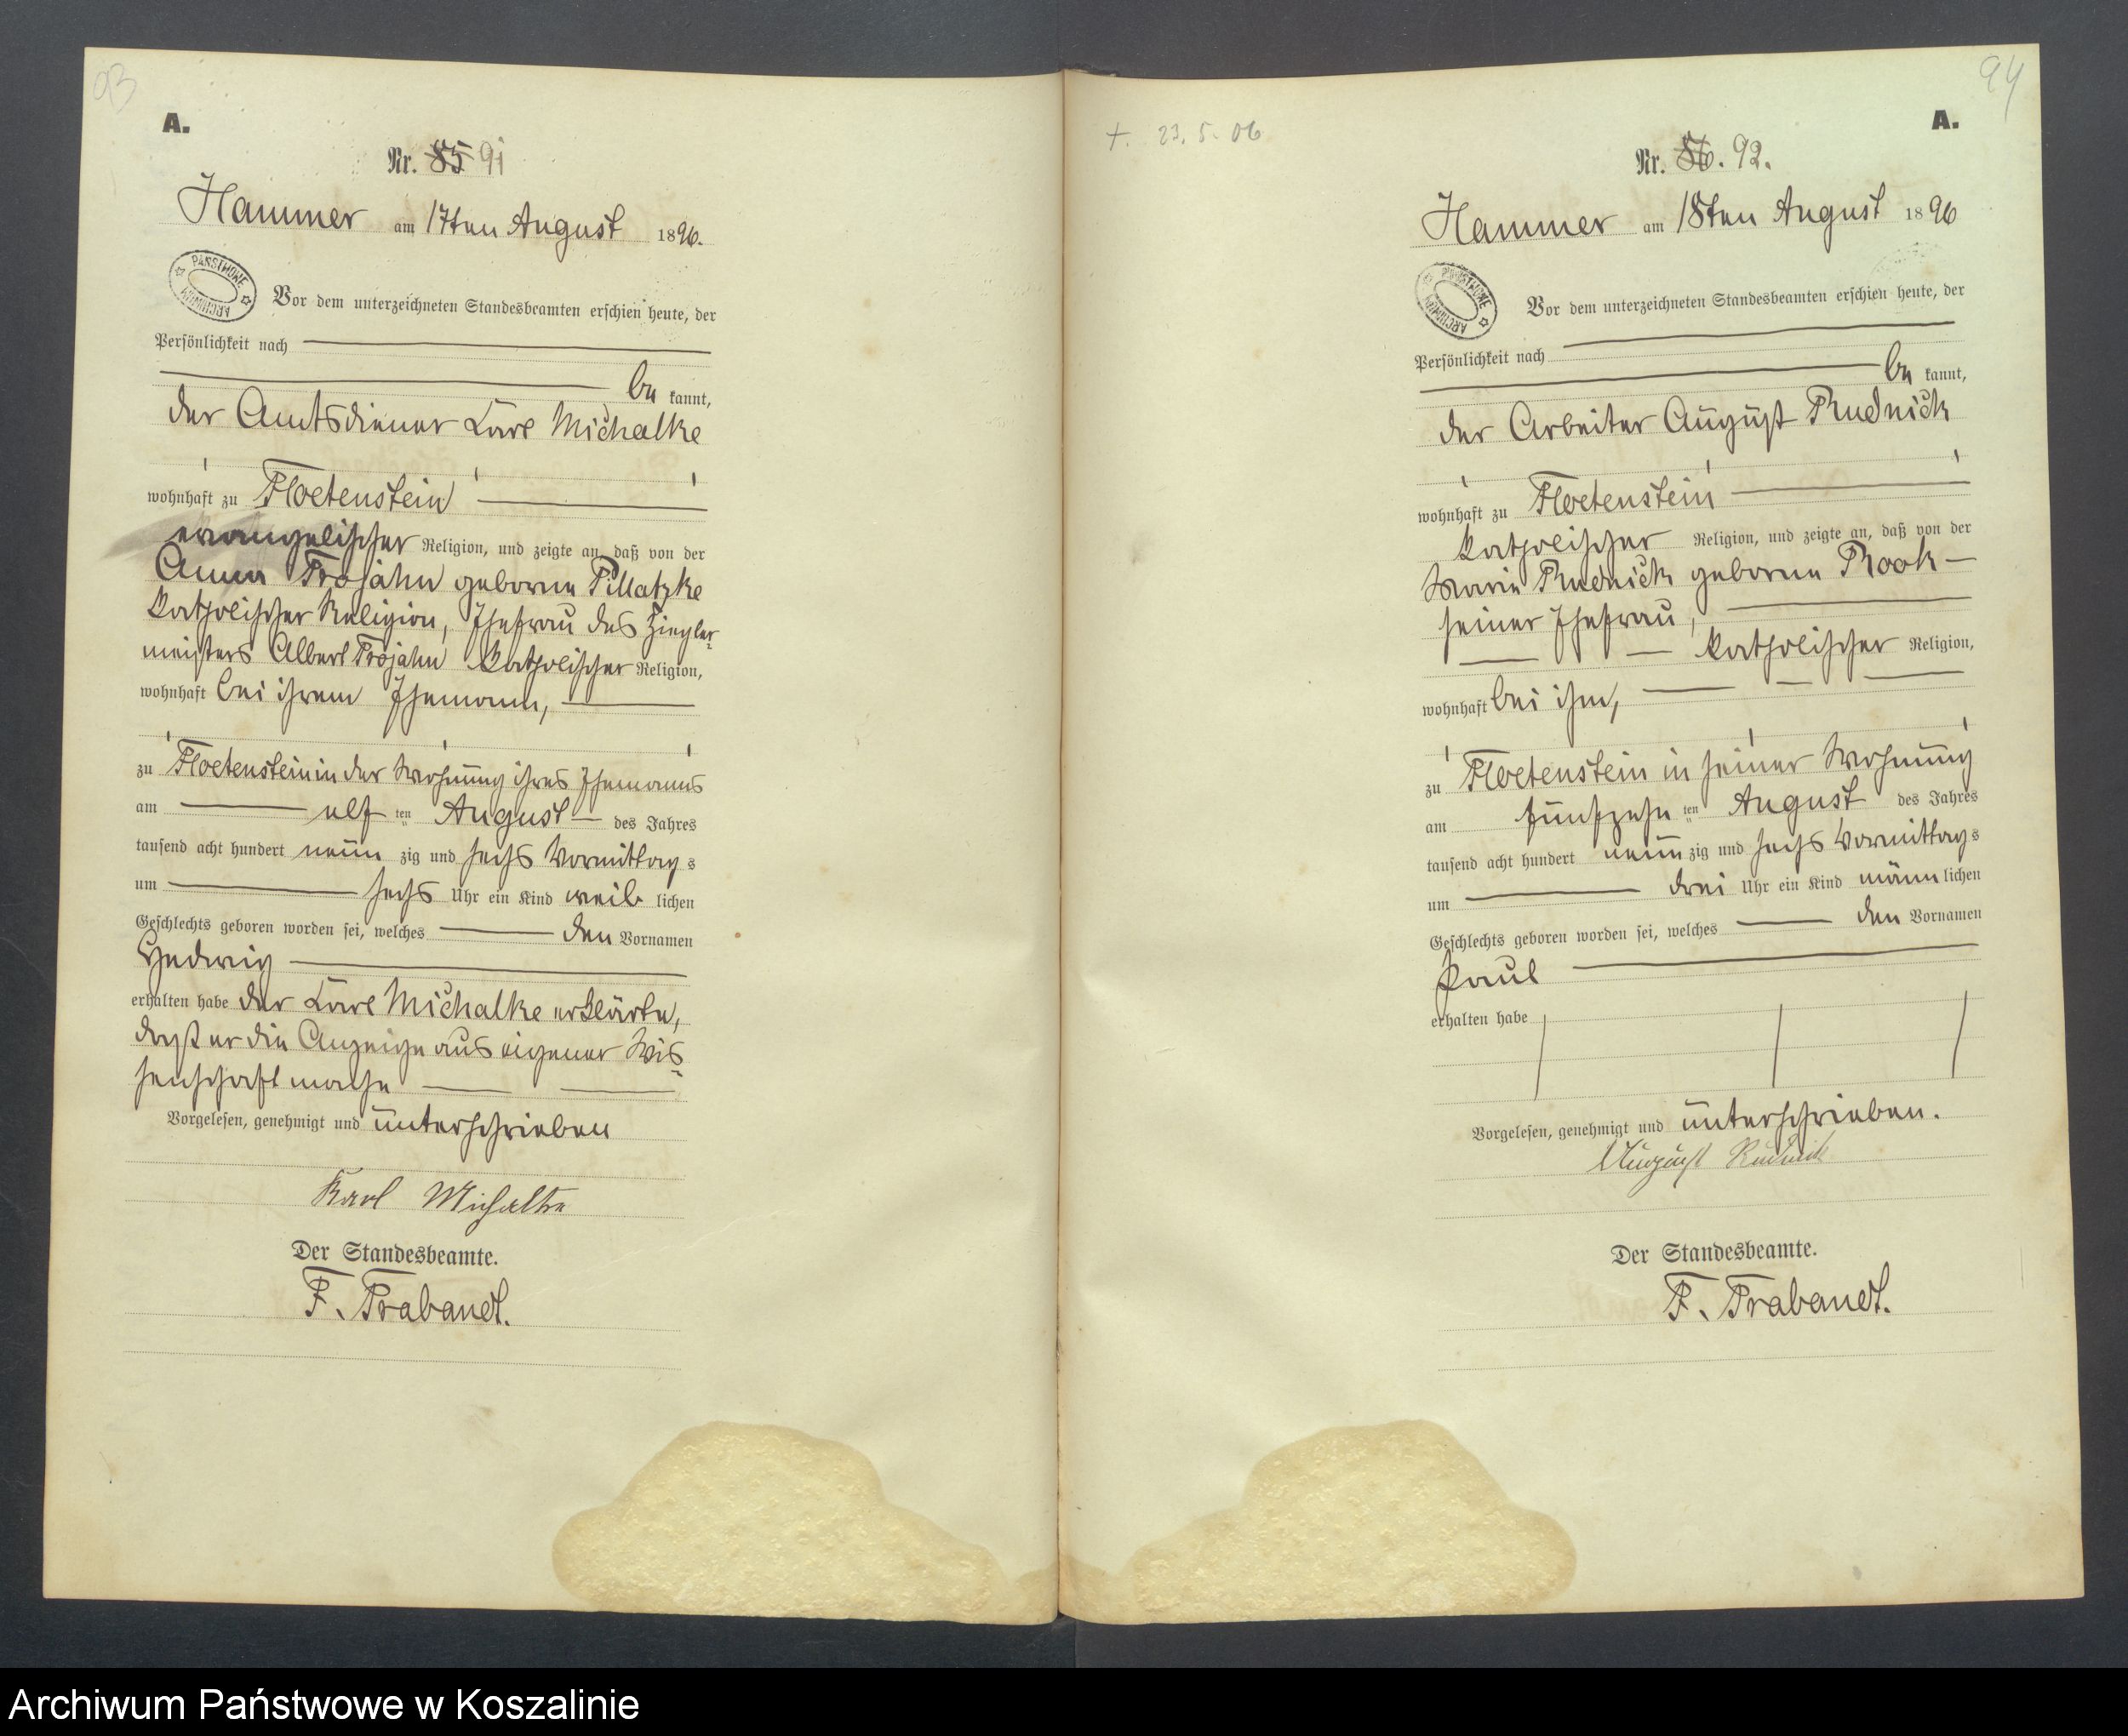 93
A.
Nr. 85 91
Hammer am 17ten August 1896.
PAŃSTWOWE ARCHIWUM
Vor dem unterzeichneten Standesbeamten erschien heute, der
Persönlichkeit nach
be kannt,
der Amtsdiener Carl Michalke
wohnhaft zu Floetenstein
evangelischer Religion, und zeigte an, daß von der
Anna Trojahn geborne Pillatzke
katholischer Religion, Ehefrau des Ziegler-
meisters Albert Trojahn katholischer Religion,
wohnhaft bei ihrem Ehemann,
zu Floetenstein in der Wohnung ihres Ehemanns
am elf ten August des Jahres
tausend acht hundert neun zig und sechs Vormittags
um sechs Uhr ein Kind weib lichen
Geschlechts geboren worden sei, welches den Vornamen
Hedwig
erhalten habe der Carl Michalke erklärte,
daß er die Anzeige aus eigener Wis-
senschaft mache
Vorgelesen, genehmigt und unterschrieben
Karl Michalke
Der Standesbeamte.
F. Trabandt.
94
+. 23. 5. 06
A.
Nr. 86. 92.
Hammer am 18ten August 1896
PAŃSTWOWE ARCHIWUM
Vor dem unterzeichneten Standesbeamten erschien heute, der
Persönlichkeit nach
be kannt,
der Arbeiter August Rudnick
wohnhaft zu Floetenstein
katholischer Religion, und zeigte an, daß von der
Marie Rudnick geborne Rook
seiner Ehefrau,
katholischer Religion,
wohnhaft bei ihm,
zu Floetenstein in seiner Wohnung
am fünfzehn ten August des Jahres
tausend acht hundert neun zig und sechs Vormittags
um drei Uhr ein Kind männ lichen
Geschlechts geboren worden sei, welches den Vornamen
Paul
erhalten habe
Vorgelesen, genehmigt und unterschrieben.
August Rudnick
Der Standesbeamte.
F. Trabandt.
Archiwum Państwowe w Koszalinie